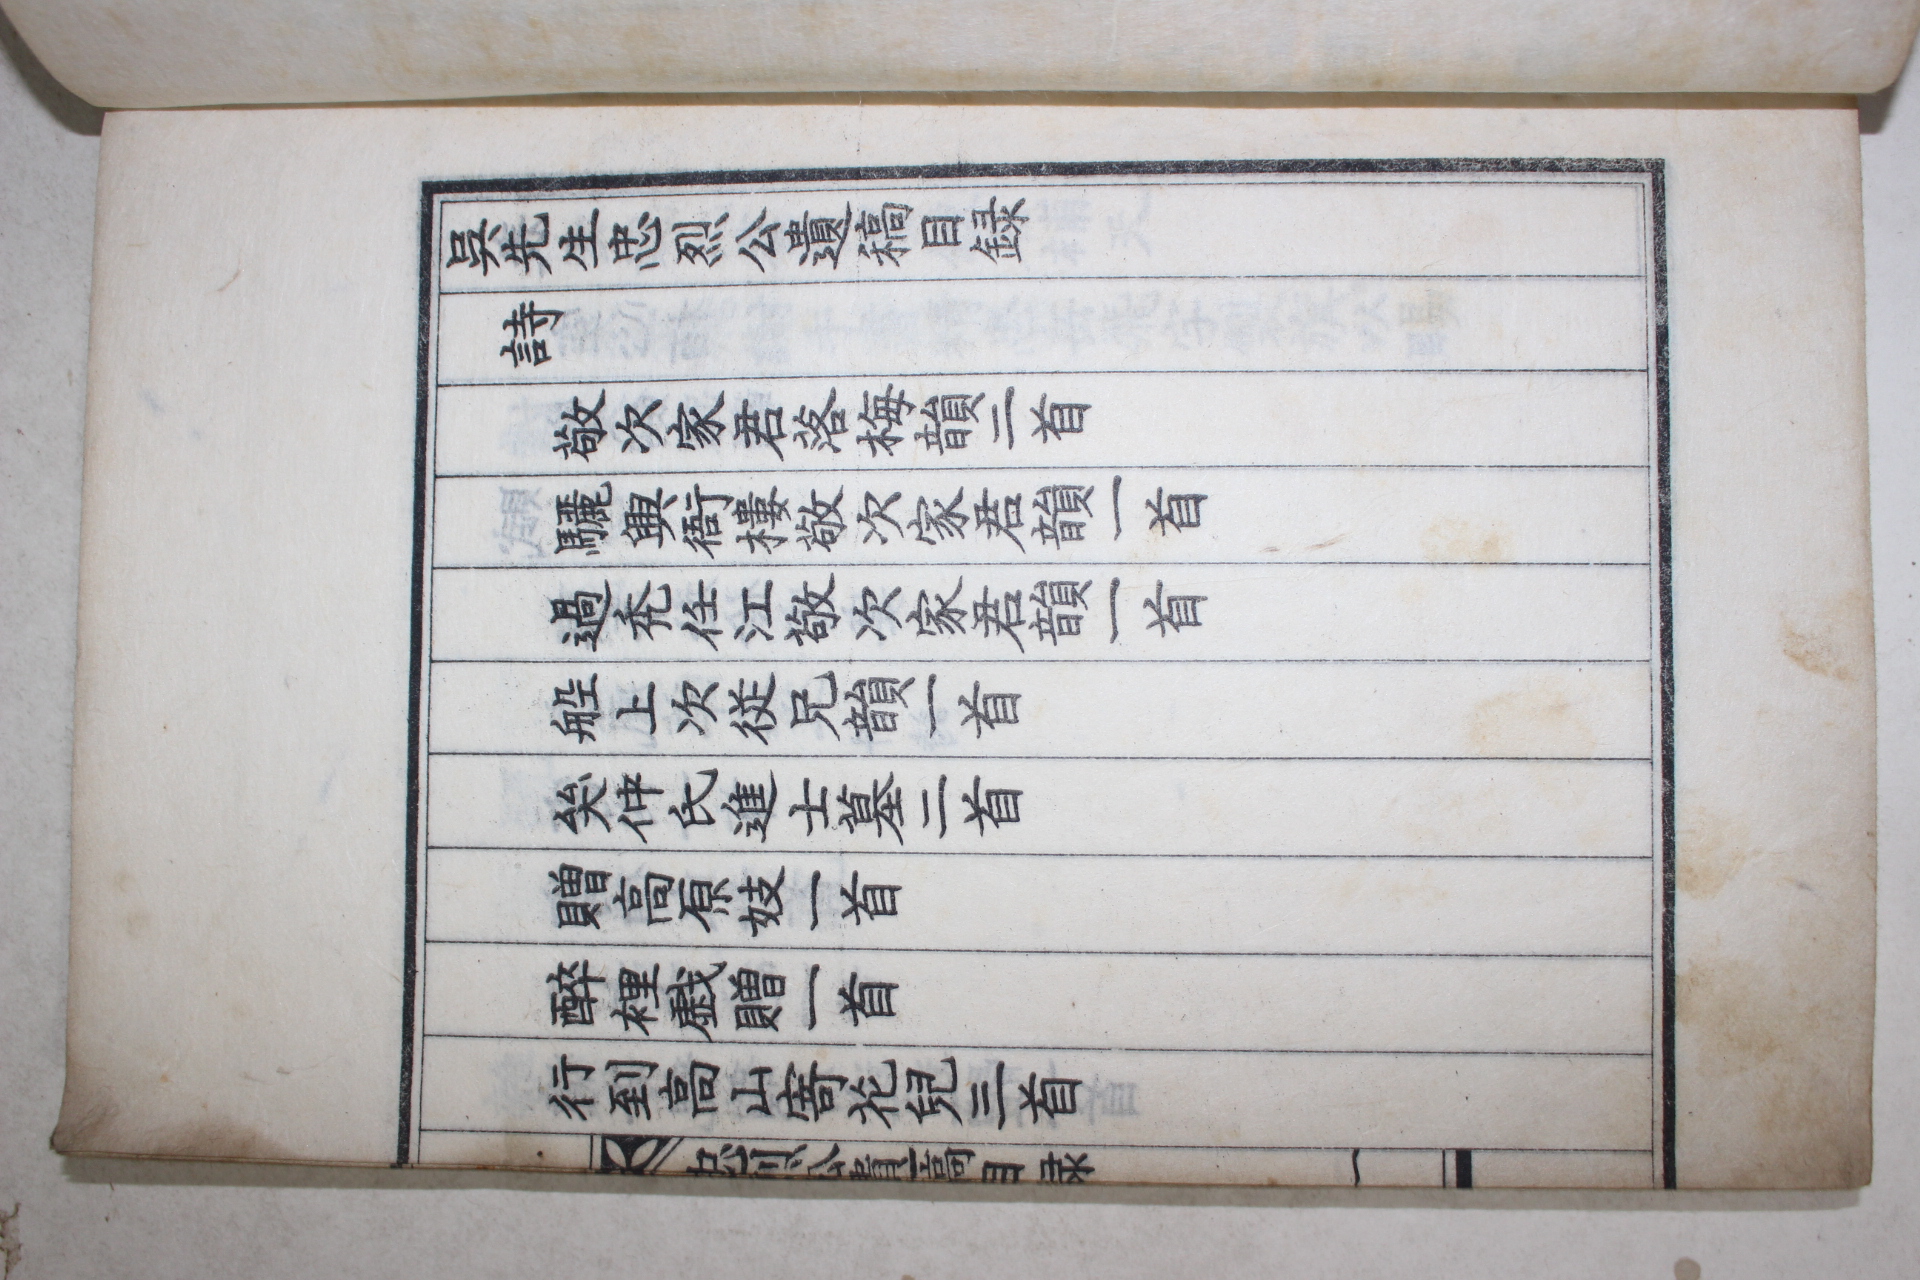 吳先生忠烈公遺稿目録
詩
敬次家君落梅韻二首
驪興衙樓敬次家君韻一首
過禿任江敬次家君韻一首
舩上次從兄韻一首
哭仲氏進士墓二首
贈高原妓一首
醉裡戱贈一首
行到高山寄花兒三首
忠烈公遺稿目録
一